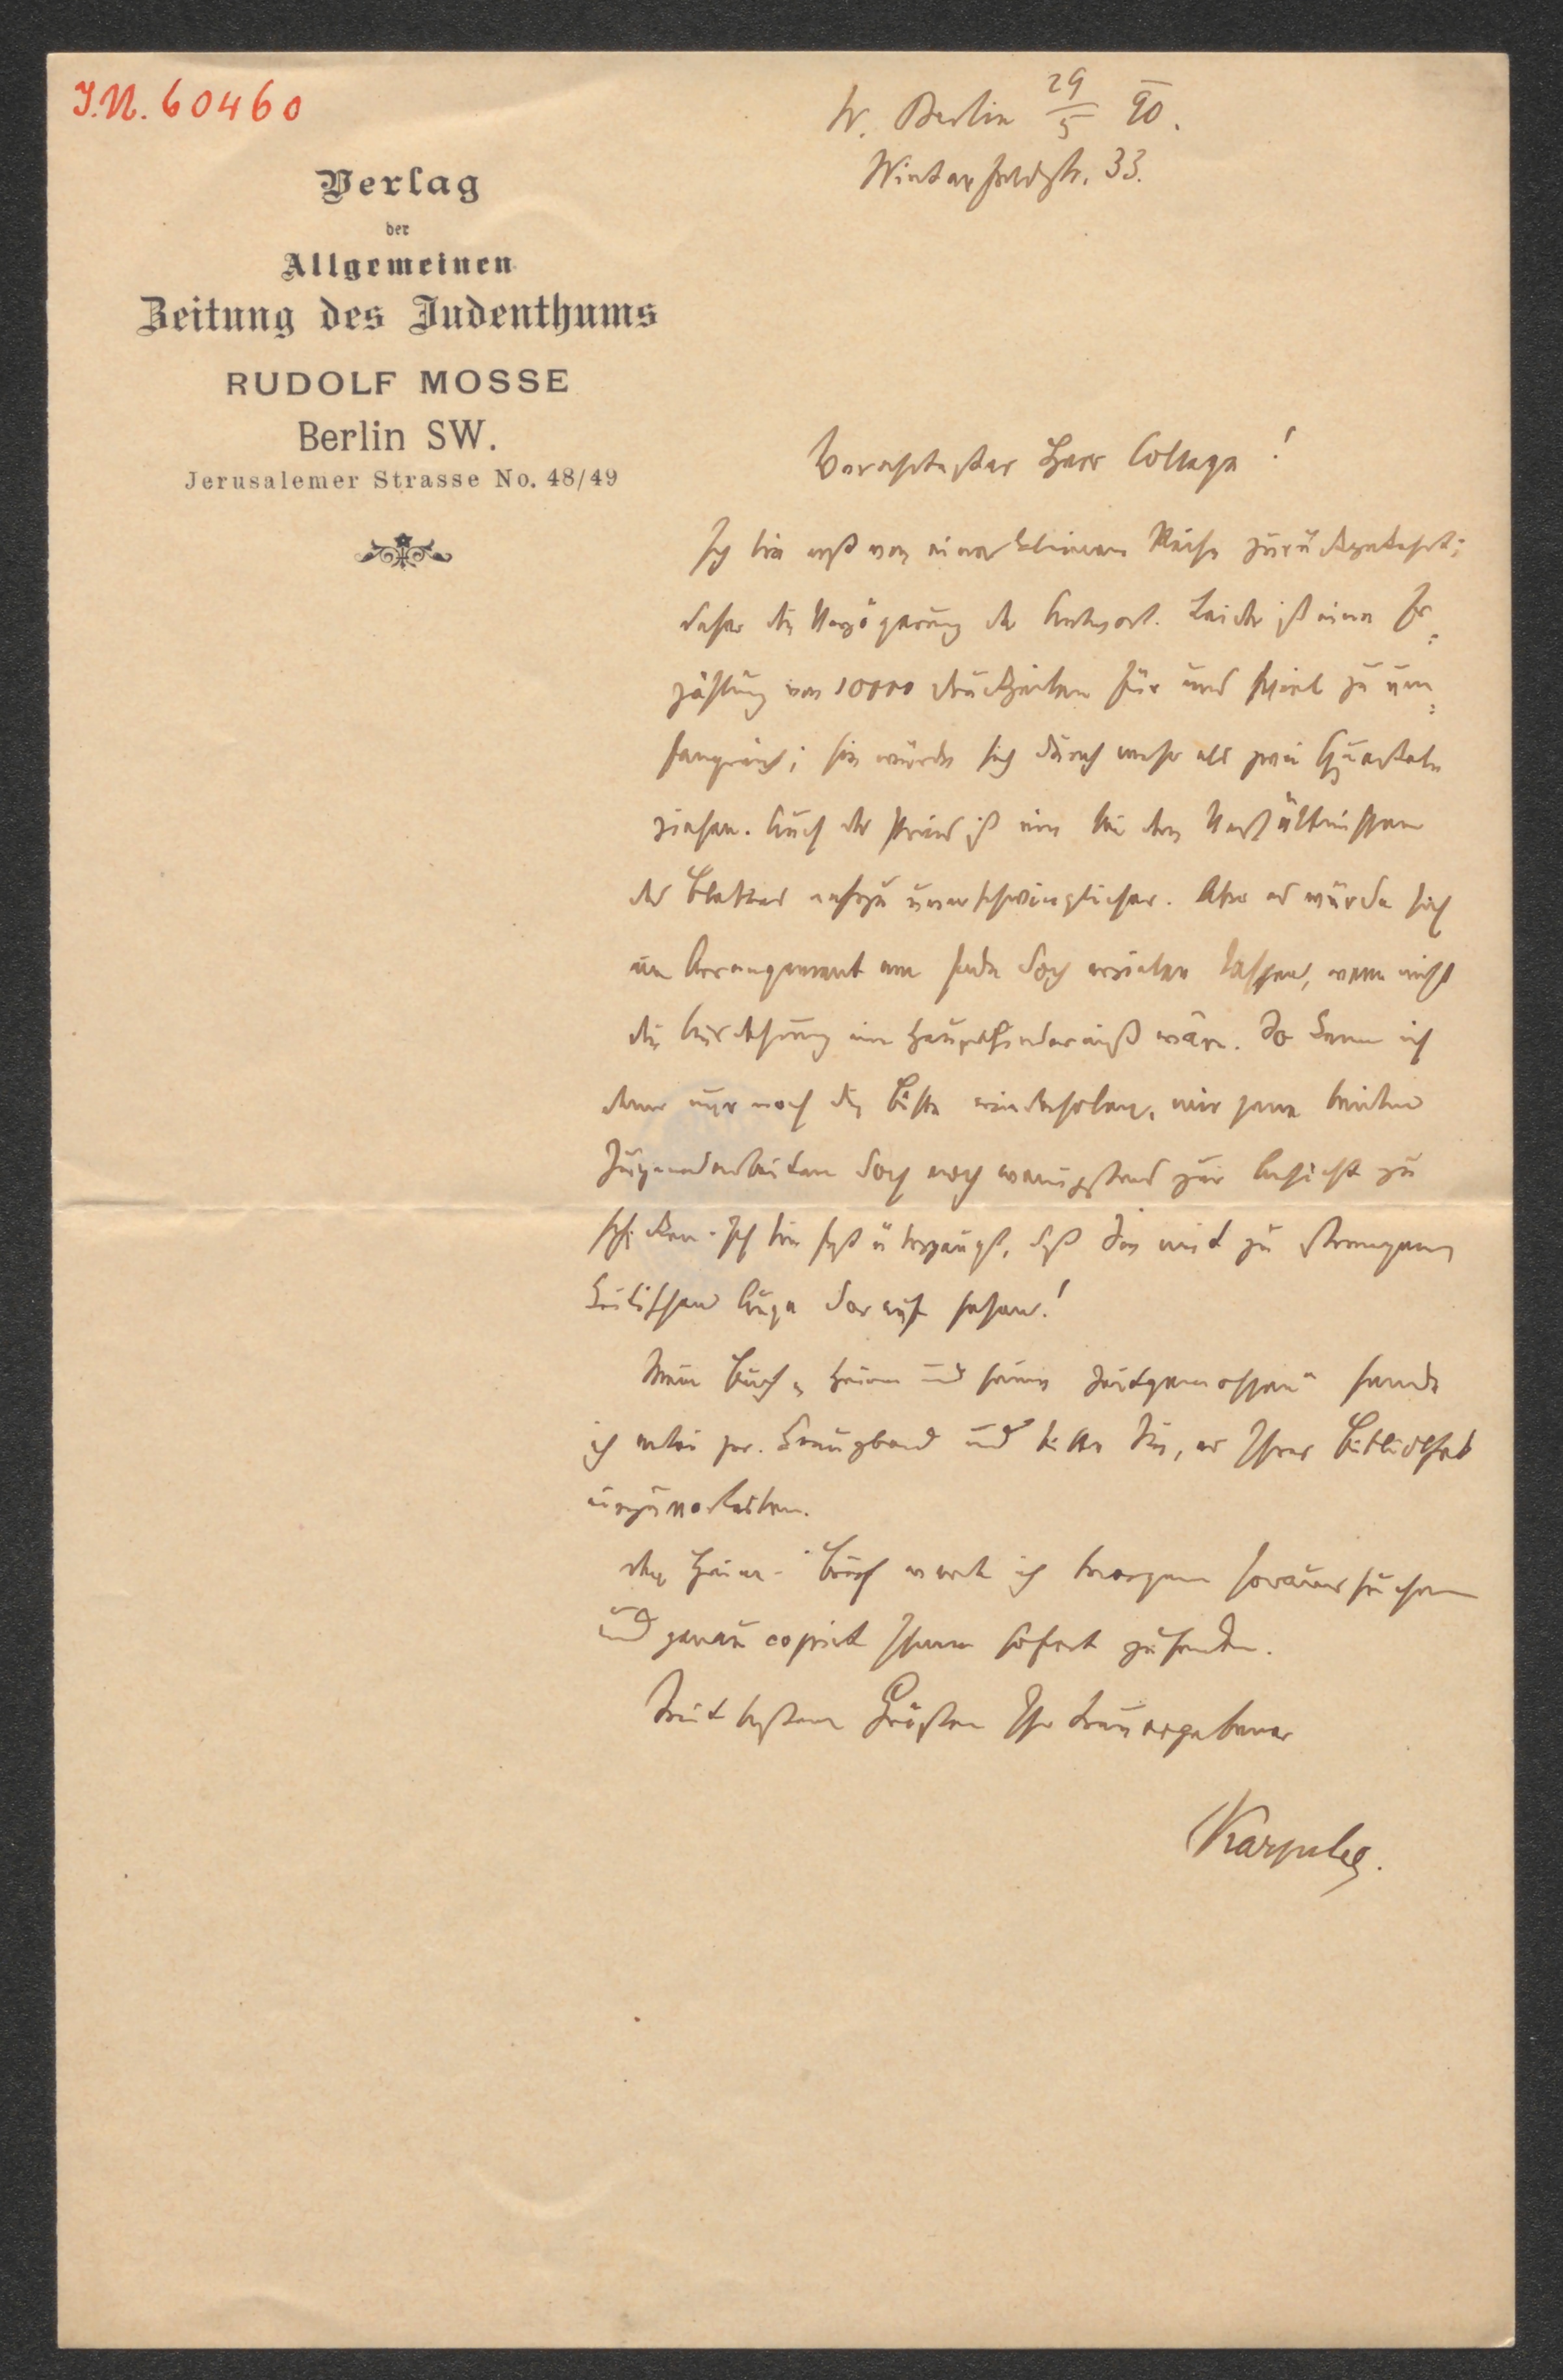 I.N. 60460
W. Berlin 29/5 90.
Winterfeldstr. 33.
Verlag
der
Allgemeinen
Zeitung des Judenthums
RUDOLF MOSSE
Berlin SW.
Jerusalemer Strasse No. 48/49
Verehrtester Herr College!
Ich bin erst von einer kleinen Reise zurückgekehrt;
daher die Verzögerung der Antwort. Leider ist eine Er-
zählung von 10000 Druckzeilen für uns viel zu um-
fangreich; sie würde sich durch mehr als zwei Quartale
ziehen. Auch der Preis ist ein bei den Verhältnissen
des Blattes nahezu unerschwinglicher. Aber es würde sich
ein Arrangement am Ende doch erzielen lassen, wenn nicht
die Ausdehnung ein Haupthinderniß wäre. So kann ich
denn nur noch die Bitte wiederholen, mir jene beiden
Jugendarbeiten doch noch wenigstens zur Ansicht zu
schicken. Ich bin fest überzeugt, daß Sie mit zu strengem
kritischen Auge darauf sehen!
Mein Buch „Heine und seine Zeitgenossen“ sende
ich anbei pr. Kreuzband und bitte Sie, es Ihrer Bibliothek
einzuverleiben.
Den Heine-Brief werde ich morgen heraussuchen
und genau copirt Ihnen sofort zusenden.
Mit besten Grüßen Ihr treu ergebener
Karpeles.